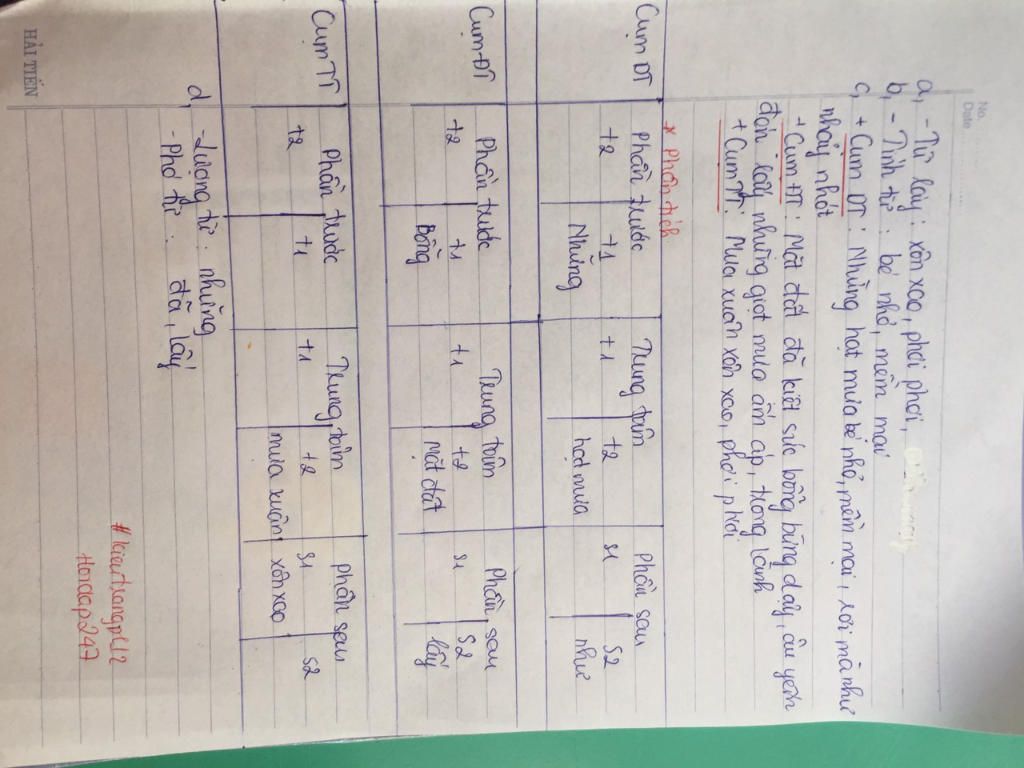 No.
Date
a, - Từ láy: xôn xao, phơi phới,
b, - Tính từ: bé nhỏ, mềm mại
c, + Cụm DT: Những hạt mưa bé nhỏ, mềm mại, rơi mà như
nhảy nhót
+ Cụm ĐT: Mặt đất đã kiệt sức bỗng bừng dậy, âu yếm
đón lấy những giọt mưa ấm áp, trong lành
+ Cụm TT: Mưa xuân xôn xao, phơi phới
* Phân tích
Cụm DT Phần trước Trung tâm Phần sau
t2 t1 t1 t2 s1 s2
Những hạt mưa như
Cụm ĐT Phần trước Trung tâm Phần sau
t2 t1 t1 t2 s1 s2
Bỗng Mặt đất lấy
Cụm TT Phần trước Trung tâm Phần sau
t2 t1 t1 t2 s1 s2
mưa xuân xôn xao
d, - Lượng từ: những
- Phó từ: đã, lấy
#kieutrangpl12
Hoidap247
HẢI TIẾN